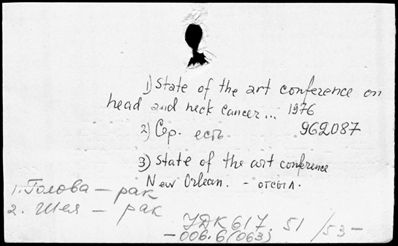 1) State of the art conference on
head and neck cancer... 1976
2) Сер. есть. 962087
3) State of the art conference
New Orlean. - отсыл.
1. Голова - рак
2. Шея - рак
УДК 617.51/53-
-006.6(063)